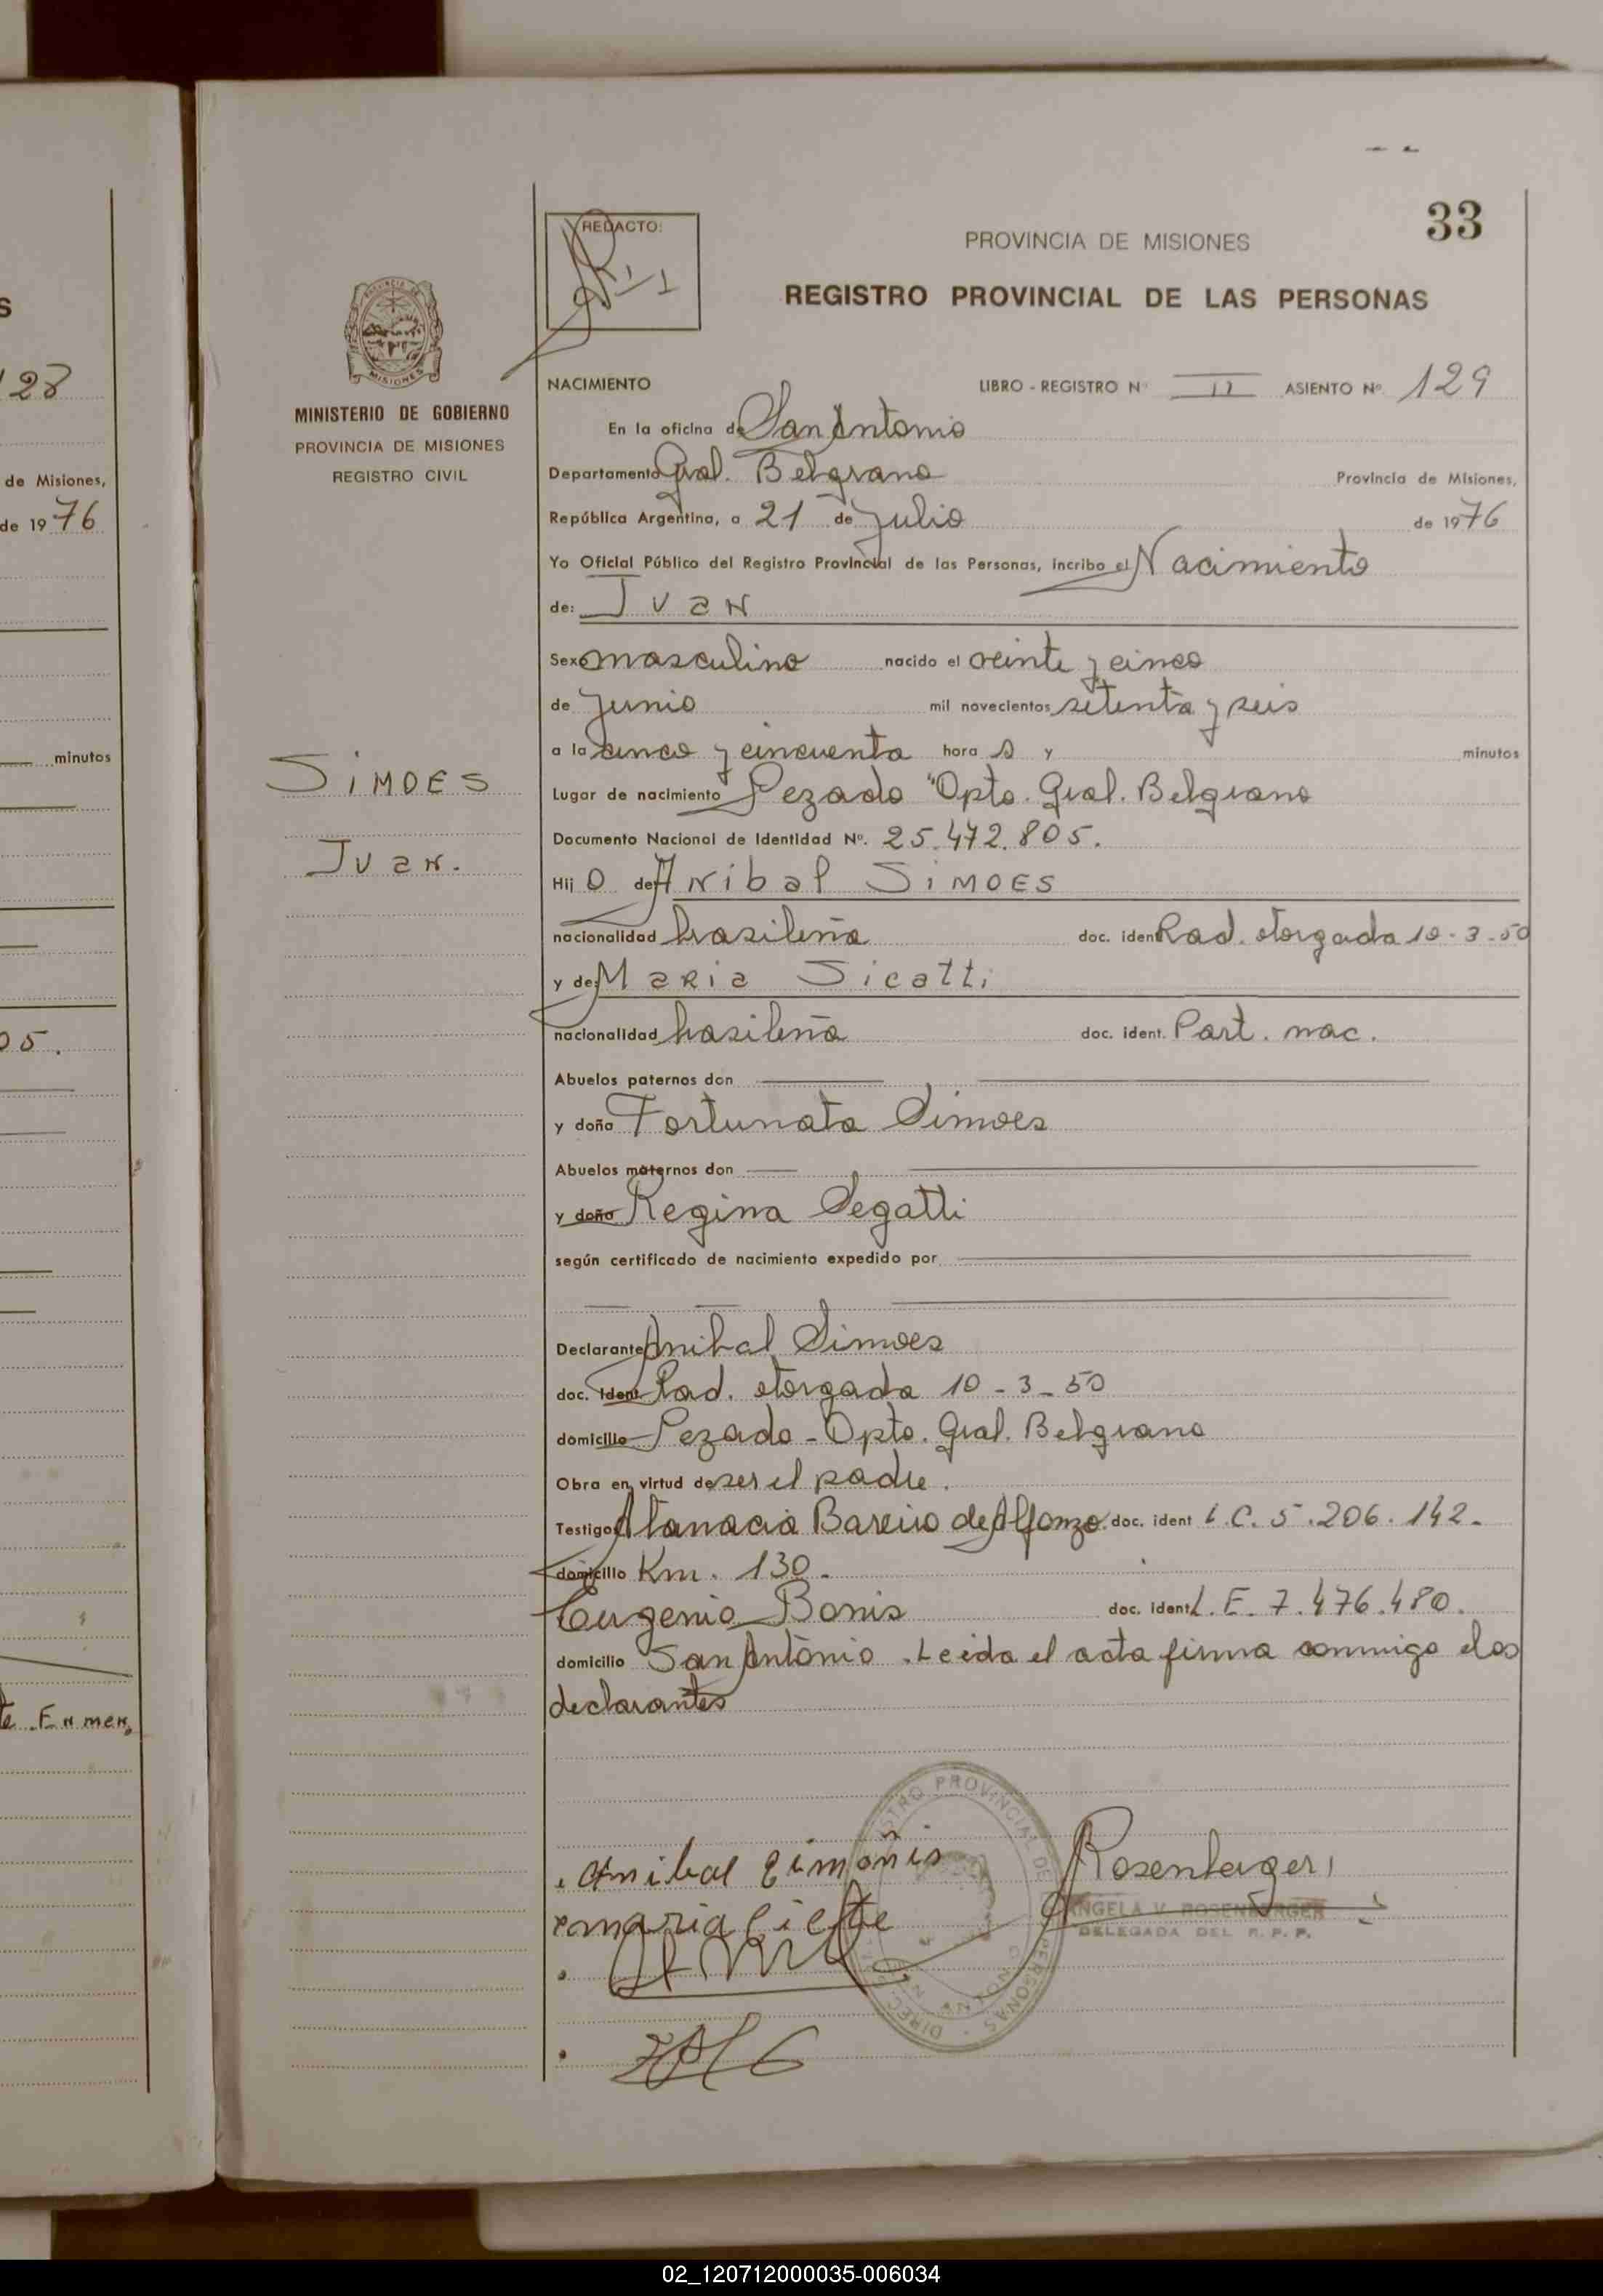 S
128
de Misiones,
de 1976
minutos
05.
33
REDACTO:
PROVINCIA DE MISIONES
REGISTRO PROVINCIAL DE LAS PERSONAS
MISIONES
MINISTERIO DE GOBIERNO
PROVINCIA DE MISIONES
REGISTRO CIVIL
NACIMIENTO LIBRO - REGISTRO Nº II ASIENTO Nº 129
En la oficina de San Antonio
Departamento Gral. Belgrano Provincia de Misiones,
República Argentina, a 21 de Julio de 1976
Yo Oficial Público del Registro Provincial de las Personas, incribo el Nacimiento
de: Juan
Sexo masculino nacido el veinte y cinco
de Junio mil novecientos setenta y seis
a la cinco y cincuenta hora s y minutos
SIMOES
Juan.
Lugar de nacimiento Pezado Dpto. Gral. Belgrano
Documento Nacional de Identidad Nº. 25.472.805.
Hij o de Anibal SIMOES
nacionalidad brasileña doc. ident. Rad. otorgada 10-3-50
y de: Maria Sicatti
nacionalidad brasileña doc. ident. Part. nac.
Abuelos paternos don
y doña Fortunata Simoes
Abuelos maternos don
y doña Regina Segatti
según certificado de nacimiento expedido por
Declarante Anibal Simoes
doc. Ident. Rad. otorgada 10-3-50
domicilio Pezado - Dpto. Gral. Belgrano
Obra en virtud de ser el padre.
Testigos Atanacia Bareiro de Alfonzo. doc. ident L.C. 5.206.142.
domicilio Km. 130.
Eugenio Bonis doc. ident L.E. 7.476.480.
domicilio San Antonio. Leida el acta firma conmigo elos
declarantes
Anibal
maria
Rosenberger
ANGELA V. ROSENBERGER
DELEGADA DEL R.P.P.
02_120712000035-006034